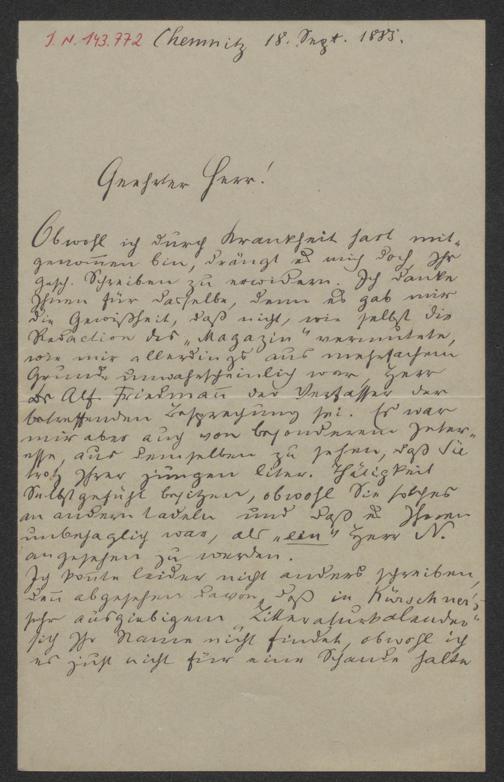 J. N. 143.772 Chemnitz 18. Sept. 1885.
Geehrter Herr!
Obwohl ich durch Krankheit hart mit-
genommen bin, drängt es mich doch, Ihr
gesch. Schreiben zu erwidern. Ich danke
Ihnen für dasselbe, denn es gab mir
die Gewißheit, daß nicht, wie selbst die
Redaction des „Magazin" vermutete,
wie mir allerdings aus mehrfachem
Grunde unwahrscheinlich war, Herr
Dr Alf. Friedmann der Verfasser der
betreffenden Besprechung sei. Es war
mir aber auch von besonderem Inter-
esse, aus demselben zu sehen, daß Sie
trotz Ihrer jungen liter. Thätigkeit
Selbstgefühl besitzen, obwohl Sie solches
an andern tadeln und daß es Ihnen
unbehaglich war, als „ein" Herr N.
angesehen zu werden.
Ich konnte leider nicht anders schreiben,
denn abgesehen davon, daß in Kürschner's
sehr ausgiebigem „Litteraturkalender"
sich Ihr Name nicht findet, obwohl ich
es just nicht für eine Schande halte